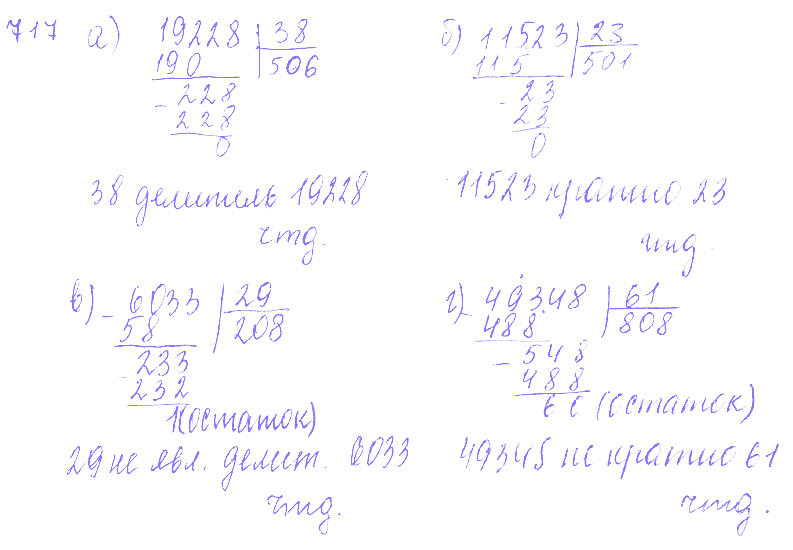 717 а) 19228 38
190 506
- 228
228
0
38 делитель 19228
чтд.
б) 11523 23
115 501
- 23
23
0
11523 кратно 23
чтд.
в) - 6033 29
58 208
- 233
232
1(остаток)
29 не явл. делит. 6033
чтд.
г) - 49348 61
488 808
- 548
488
60 (остаток)
49348 не кратно 61
чтд.